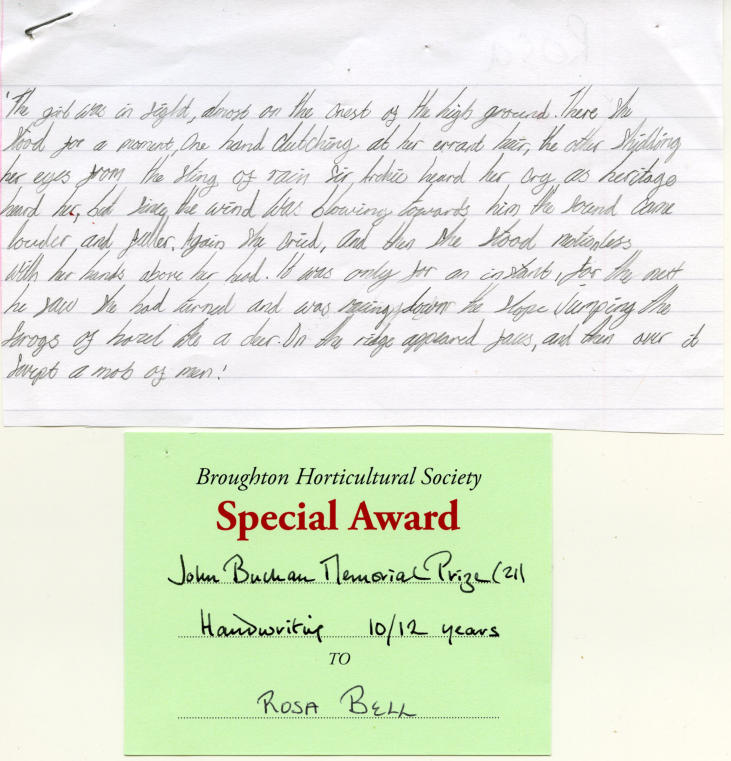 Rosa
'The girl was in sight, almost on the crest of the high ground. There she
stood for a moment, one hand clutching at her errant hair, the other shilding
her eyes from the sting of rain Sir Archie heard her cry as heritage
heard her, but since the wind was blowing towards him the sound came
louder and fuller. Again she cried, and then she stood motionless
with her hands above her head. It was only for an instant, for the next
he saw she had turned and was racing down the slope jumping the
scrogs of hazel like a deer. On the ridge appeared faces, and then over it
swept a mob of men!
Broughton Horticultural Society
Special Award
John Buchan Memorial Prize (21)
Handwriting 10/12 years
TO
ROSA BELL